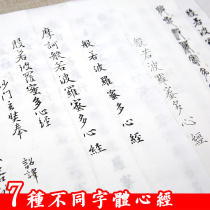 般若波羅蜜多心經
般若波羅蜜多心經
般若波羅蜜多心經
摩訶般若波羅蜜多心經
般若波羅蜜多心經
沙門玄奘奉 詔譯
7種不同字體心經